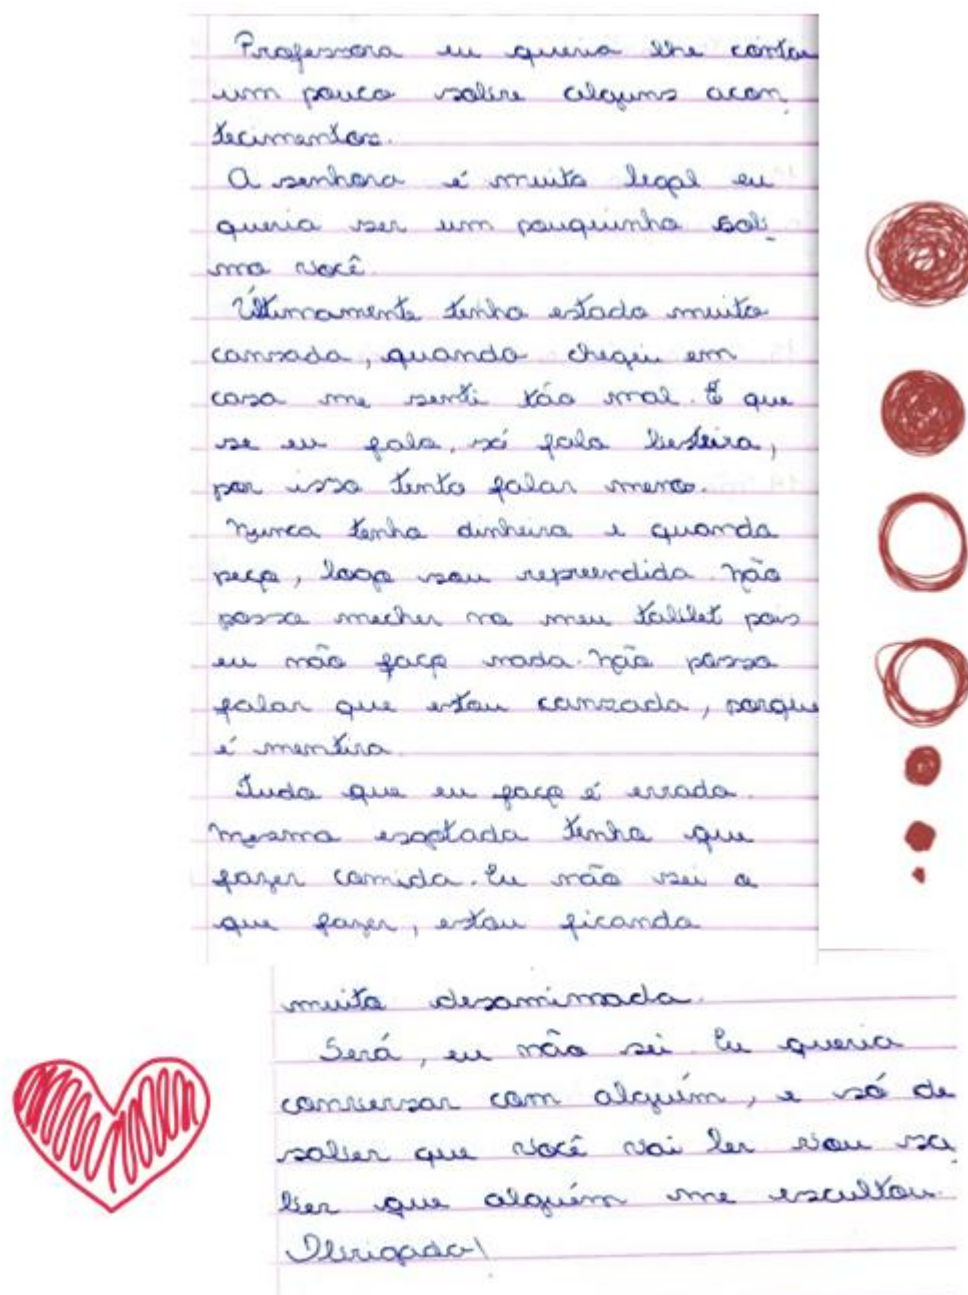 Professora eu queria lhe contar
um pouco sobre alguns acon
tecimentos.
A senhora é muito legal eu
queria ser um pouquinho
você.
Últimamente tenho estado muito
cansada, quando chegei em
casa me senti tão mal. É que
se eu falo, só falo besteira,
por isso tento falar menos.
Nunca tenho dinheiro e quando
peço, logo sou repreendida. Não
posso mecher no meu tablet pois
eu não faço nada. Não posso
falar que estou canzada, porque
é mentira.
Tudo que eu faço é errado.
Mesmo esgotada tenho que
fazer comida. Eu não sei o
que fazer, estou ficando
muito desanimada.
Será, eu não sei. Eu queria
conversar com alguém, e só de
saber que você vai ler vou sa
ber que alguém me escultou.
Obrigada!